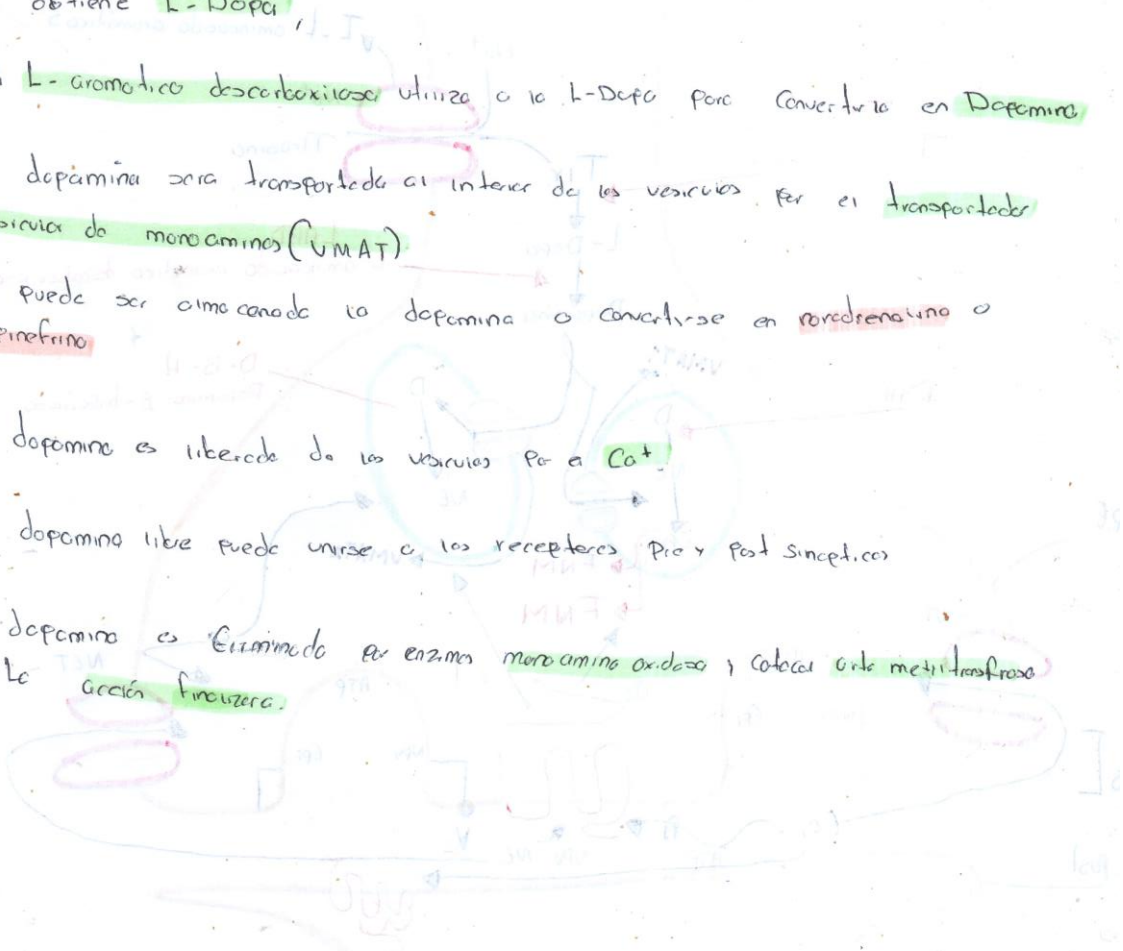 obtiene L-Dopa,
L-aromatico descarboxilasa utiliza a la L-Dopa para convertirla en Dopamina
dopamina sera transportada al interior de las vesiculas por el transportador
de monoaminas (VMAT)
puede ser almacenada la dopamina o convertirse en noradrenalina o
dopamina es liberada de las vesiculas por el Ca+.
dopamina libre puede unirse a los receptores Pre y Post sinapticos
dopamina es Eliminada por enzimas monoamino oxidasa y catecol orto metiltrasfrasa
La acción finalizara.